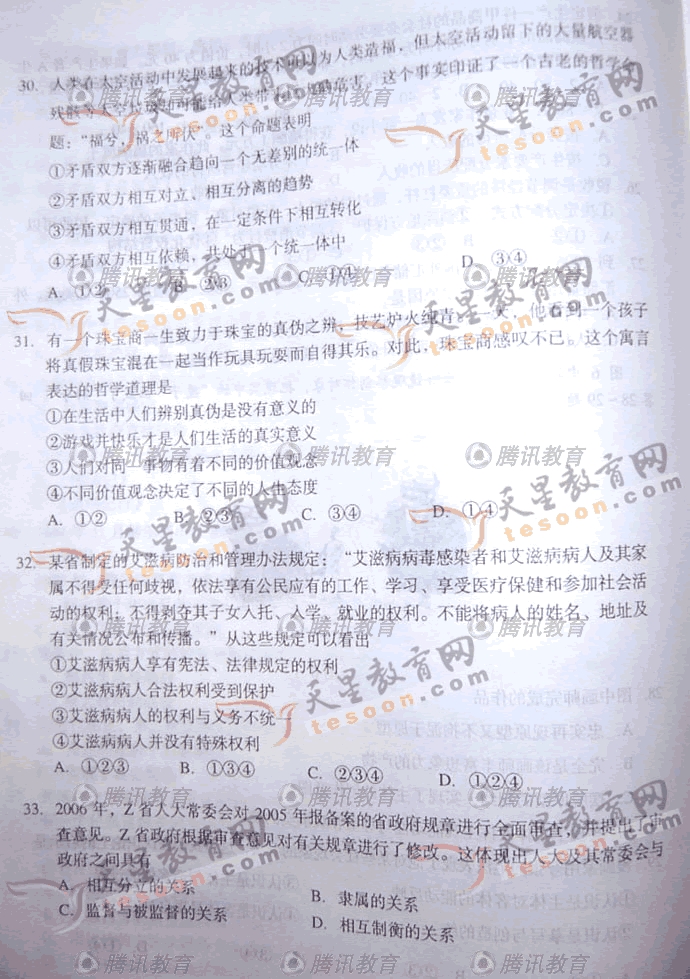 30. 人类在太空活动中发展起来的技术可以为人类造福，但太空活动留下的大量航空器
残骸等太空垃圾也可能给人类带来意想不到的危害。这个事实印证了一个古老的哲学命
题：“福兮，祸之所伏”。这个命题表明
①矛盾双方逐渐融合趋向一个无差别的统一体
②矛盾双方相互对立、相互分离的趋势
③矛盾双方相互贯通，在一定条件下相互转化
④矛盾双方相互依赖，共处于一个统一体中
A. ①② B. ②③ C. ①④ D. ③④
31. 有一个珠宝商一生致力于珠宝的真伪之辨，技艺炉火纯青。一天，他看到一个孩子
将真假珠宝混在一起当作玩具玩耍而自得其乐。对此，珠宝商感叹不已。这个寓言
表达的哲学道理是
①在生活中人们辨别真伪是没有意义的
②游戏并快乐才是人们生活的真实意义
③人们对同一事物有着不同的价值观念
④不同价值观念决定了不同的人生态度
A. ①② B. ②③ C. ③④ D. ①④
32. 某省制定的艾滋病防治和管理办法规定：“艾滋病病毒感染者和艾滋病病人及其家
属不得受任何歧视，依法享有公民应有的工作、学习、享受医疗保健和参加社会活
动的权利；不得剥夺其子女入托、入学、就业的权利。不能将病人的姓名、地址及
有关情况公布和传播。”从这些规定可以看出
①艾滋病病人享有宪法、法律规定的权利
②艾滋病病人合法权利受到保护
③艾滋病病人的权利与义务不统一
④艾滋病病人并没有特殊权利
A. ①②③ B. ①③④ C. ②③④ D. ①②④
33. 2006 年，Z 省人大常委会对 2005 年报备案的省政府规章进行全面审查，并提出了审
查意见。Z 省政府根据审查意见对有关规章进行了修改。这体现出人大及其常委会与
政府之间具有
A. 相互分立的关系 B. 隶属的关系
C. 监督与被监督的关系 D. 相互制衡的关系
天星教育网
tesoon.com
腾讯教育